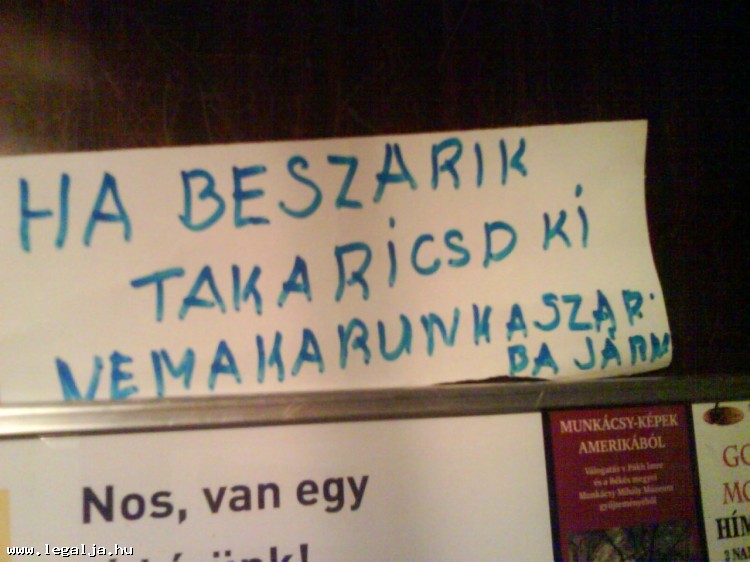 HA BESZARIK
TAKARÍCSD KI
NEMAKARUNKASZAR
BA JÁRN
Nos, van egy
MUNKÁCSY-KÉPEK
AMERIKÁBÓL
Válogatás v. Pákh Imre
és a Békés megyei
Munkácsy Mihály Múzeum
gyűjteményéből
GO
MO
HÍM
www.legalja.hu